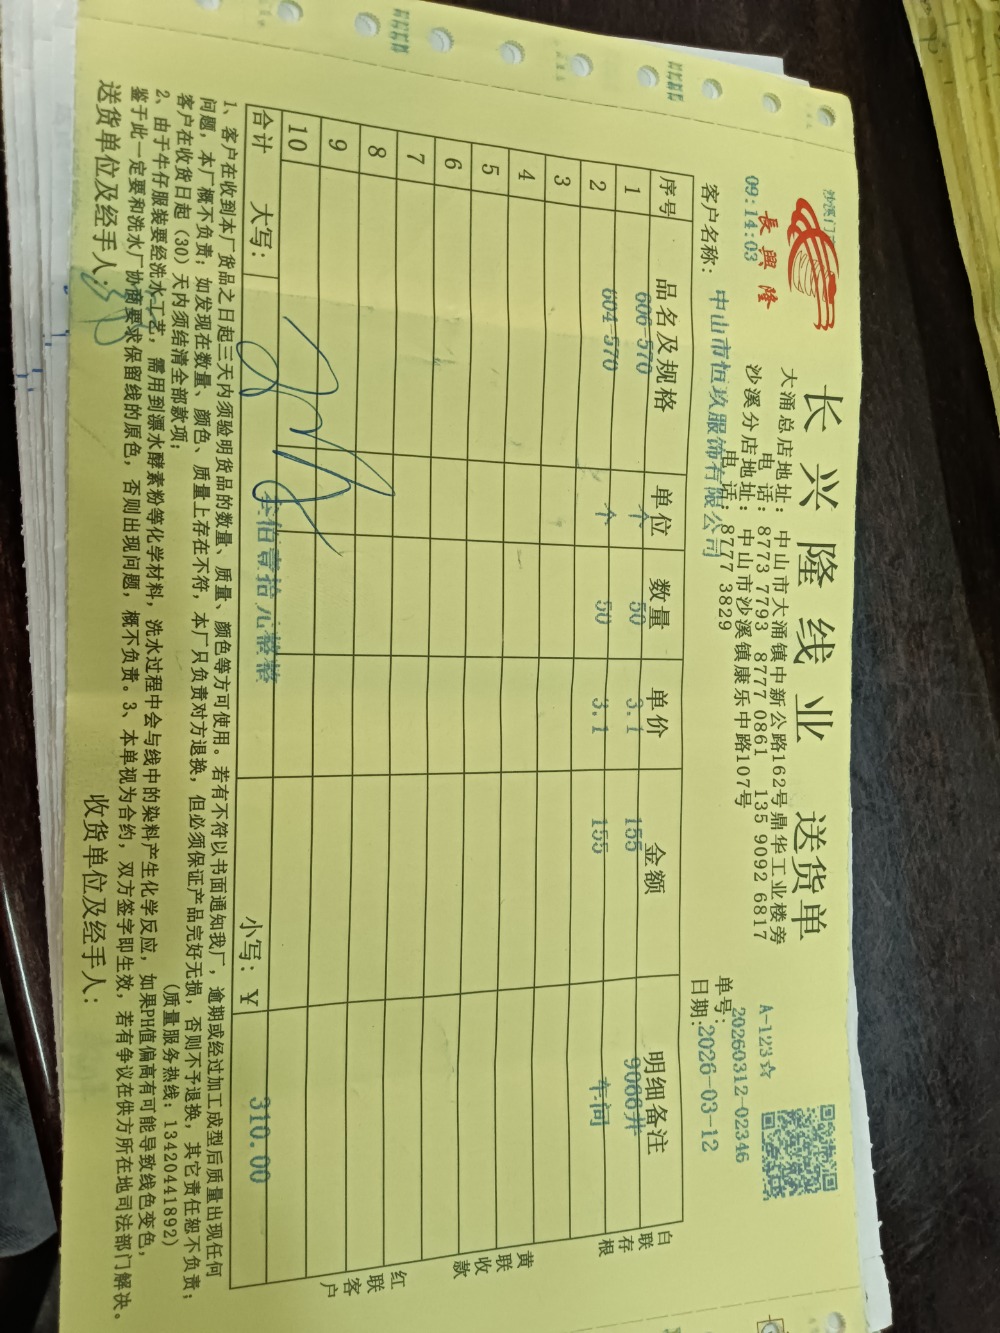 沙溪门
09:14:03
長興隆
长兴隆线业 送货单
大涌总店地址: 中山市大涌镇中新公路162号鼎华工业楼旁
电 话: 8773 7793 8777 0861 135 9092 6817
沙溪分店地址: 中山市沙溪镇康乐中路107号
电 话: 8777 3829
A-123☆
单号: 20260312-02346
客户名称: 中山市恒玖服饰有限公司
日期: 2026-03-12
序号 品名及规格 单位 数量 单价 金额 明细备注
1 606-570 个 50 3.1 155 9066井
2 604-570 个 50 3.1 155 车间
3
4
5
6
7
8
9
10
合计 大写: 叁佰壹拾元整 小写: ¥ 310.00
白联存根
黄联收款
红联客户
1、客户在收到本厂货品之日起三天内须验明货品的数量、质量、颜色等方可使用。若有不符以书面通知我厂，逾期或经过加工成型后质量出现任何
问题，本厂概不负责；如发现在数量、颜色、质量上存在不符，本厂只负责对方退换，但必须保证产品完好无损，否则不予退换，其它责任恕不负责；
客户在收货日起（30）天内须结清全部款项； (质量服务热线: 13420441892)
2、由于牛仔服装要经洗水工艺，需用到漂水酵素粉等化学材料，洗水过程中会与线中的染料产生化学反应，如果PH值偏高有可能导致线色变色，
鉴于此一定要和洗水厂协商要求保留线的原色，否则出现问题，概不负责。3、本单视为合约，双方签字即生效，若有争议在供方所在地司法部门解决。
送货单位及经手人: 收货单位及经手人: